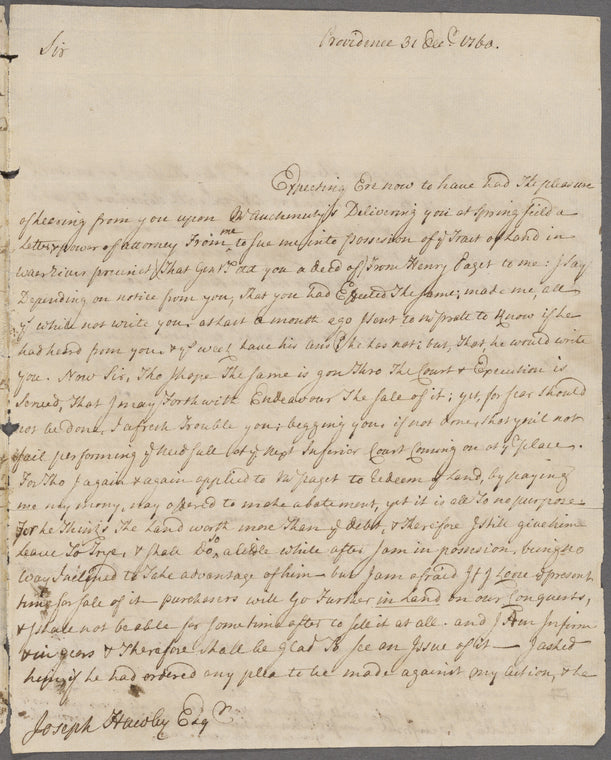 Providence 31 Decr. 1760.
Sir
Expecting Ere now to have had The pleasure
of hearing from you upon Mr Auchmuty's Delivering you at Springfield a
Letter & power of attorney From me to sue me into possession of ye Tract of Land in
precinct That Genl you a deed of, From Henry Paget to me: I say
Depending on notice from you, That you had Effected The same; made me, all
ys while not write you. at last a month ago I sent to Mr to Know if he
had heard from you. & ys week have his he has not; but, That he would write
you. Now Sir, Tho I hope The same is gon Thro The Court & Execution is
Served, That I may Forthwith Endeavour The sale of it; yet for fear should
not be done, I afresh Trouble you; begging you, if not done, that you'l not
fail performing ye Needfull at ye Next Inferior Court Coming on at yr place.
For Tho I again & again applied to Mr Paget to Redeem ye Land, by paying
me my mony, nay offered to make abatement, yet it is all To no purpose
For he Thinks The Land worth more Than ye debt, & Therefore I still give him
Leave To Trye, & shall Do so, a little while after I am in possesion, being no
way Inclined to Take advantage of him – but I am afraid If I Loose ye present
time for sale of it purchasers will Go Further in Land on our Conquests,
& I shall not be able for sometime after to sell it at all. and I am Infirm
& in years & Therefore shall be glad To see an Issue of it – I asked
him, if he had ordered any plea to be made against my action, & he
Joseph Hawley Esqr